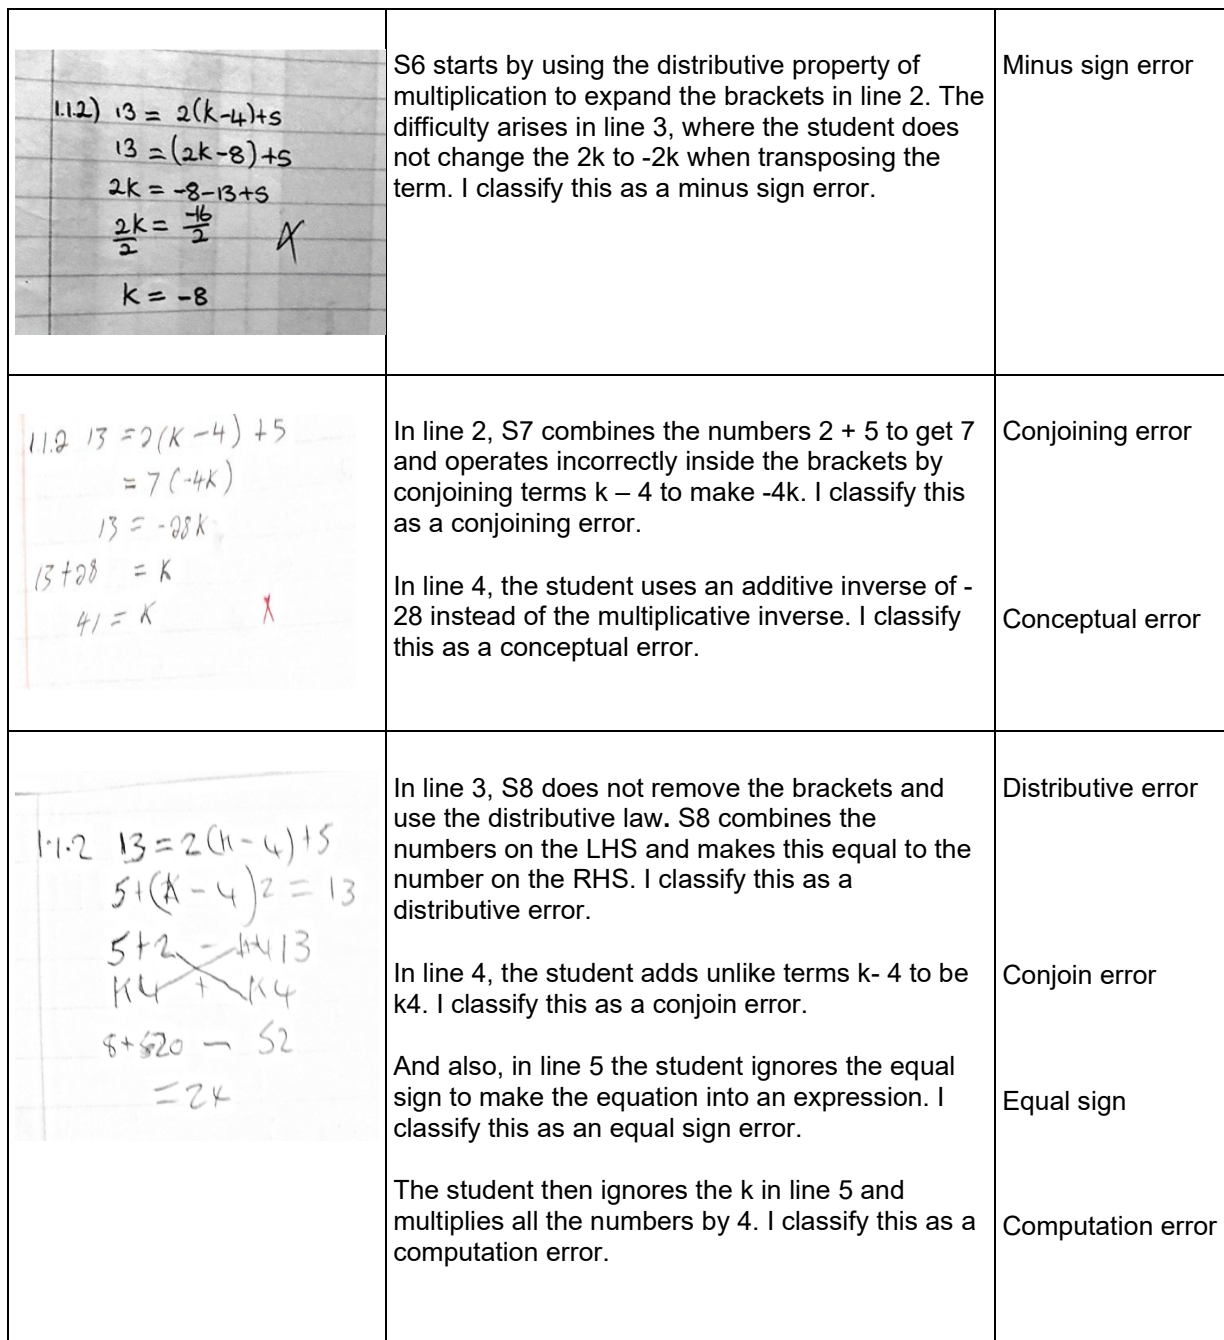 1.1.2) 13 = 2(k-4)+5
13 = (2k-8)+5
2k = -8-13+5
2k/2 = -16/2
k = -8
S6 starts by using the distributive property of
multiplication to expand the brackets in line 2. The
difficulty arises in line 3, where the student does
not change the 2k to -2k when transposing the
term. I classify this as a minus sign error.
Minus sign error
1.1.2 13 = 2(k-4) +5
= 7(-4k)
13 = -28k
13+28 = k
41 = k
In line 2, S7 combines the numbers 2 + 5 to get 7
and operates incorrectly inside the brackets by
conjoining terms k – 4 to make -4k. I classify this
as a conjoining error.
Conjoining error
In line 4, the student uses an additive inverse of -
28 instead of the multiplicative inverse. I classify
this as a conceptual error.
Conceptual error
1.1.2 13 = 2(k-4)+5
5+(k-4)2 = 13
5+2 - 13
k4 + k4
8+ 20 - 52
=24
In line 3, S8 does not remove the brackets and
use the distributive law. S8 combines the
numbers on the LHS and makes this equal to the
number on the RHS. I classify this as a
distributive error.
Distributive error
In line 4, the student adds unlike terms k- 4 to be
k4. I classify this as a conjoin error.
Conjoin error
And also, in line 5 the student ignores the equal
sign to make the equation into an expression. I
classify this as an equal sign error.
Equal sign
The student then ignores the k in line 5 and
multiplies all the numbers by 4. I classify this as a
computation error.
Computation error